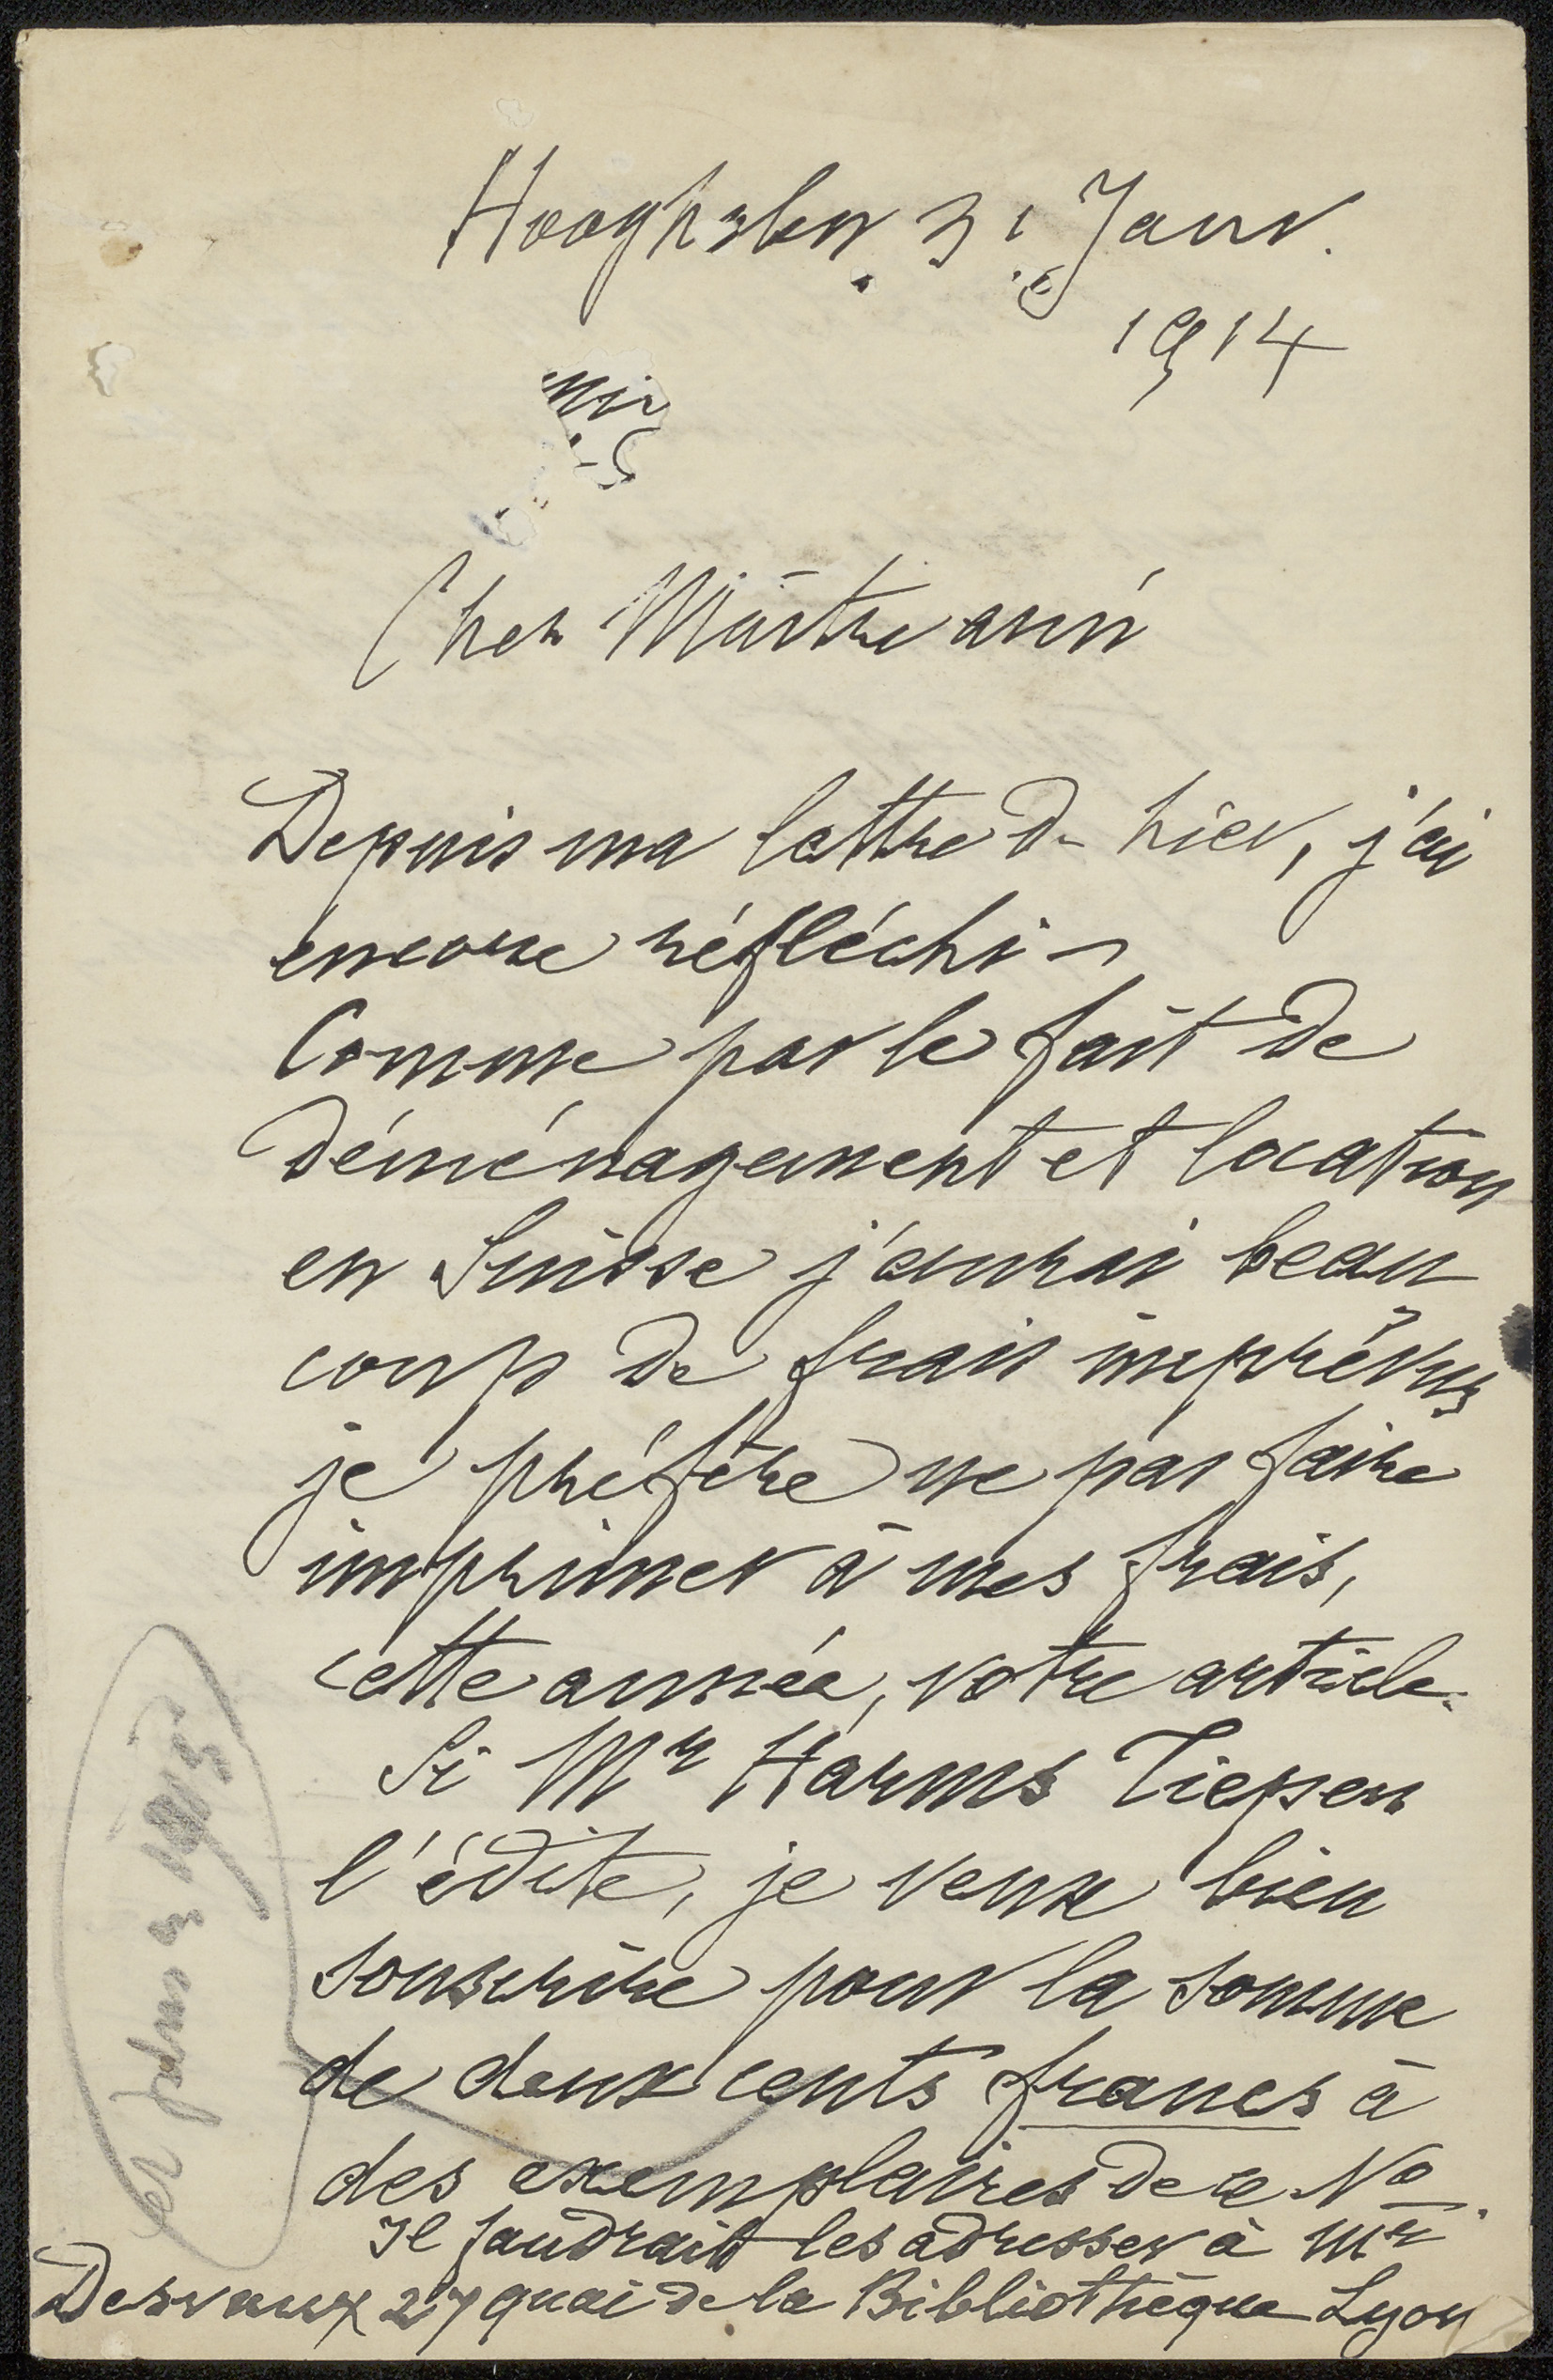 Hooghalen 31 Janv.
1914
Cher Maître ami
Depuis ma lettre de hier, j'ai
encore réfléchi –
Comme par le fait de
déménagement et location
en Suisse j'aurai beau
coup de frais imprévus
je préfère ne pas faire
imprimer à mes frais,
cette année, votre article.
Si Mr Harms Tiepen
l'édite, je veux bien
souscrire pour la somme
de deux cents francs à
des exemplaires de ce No.
Il faudrait les adresser à Mr
Desvaux 27 quai de la Bibliothèque Lyon